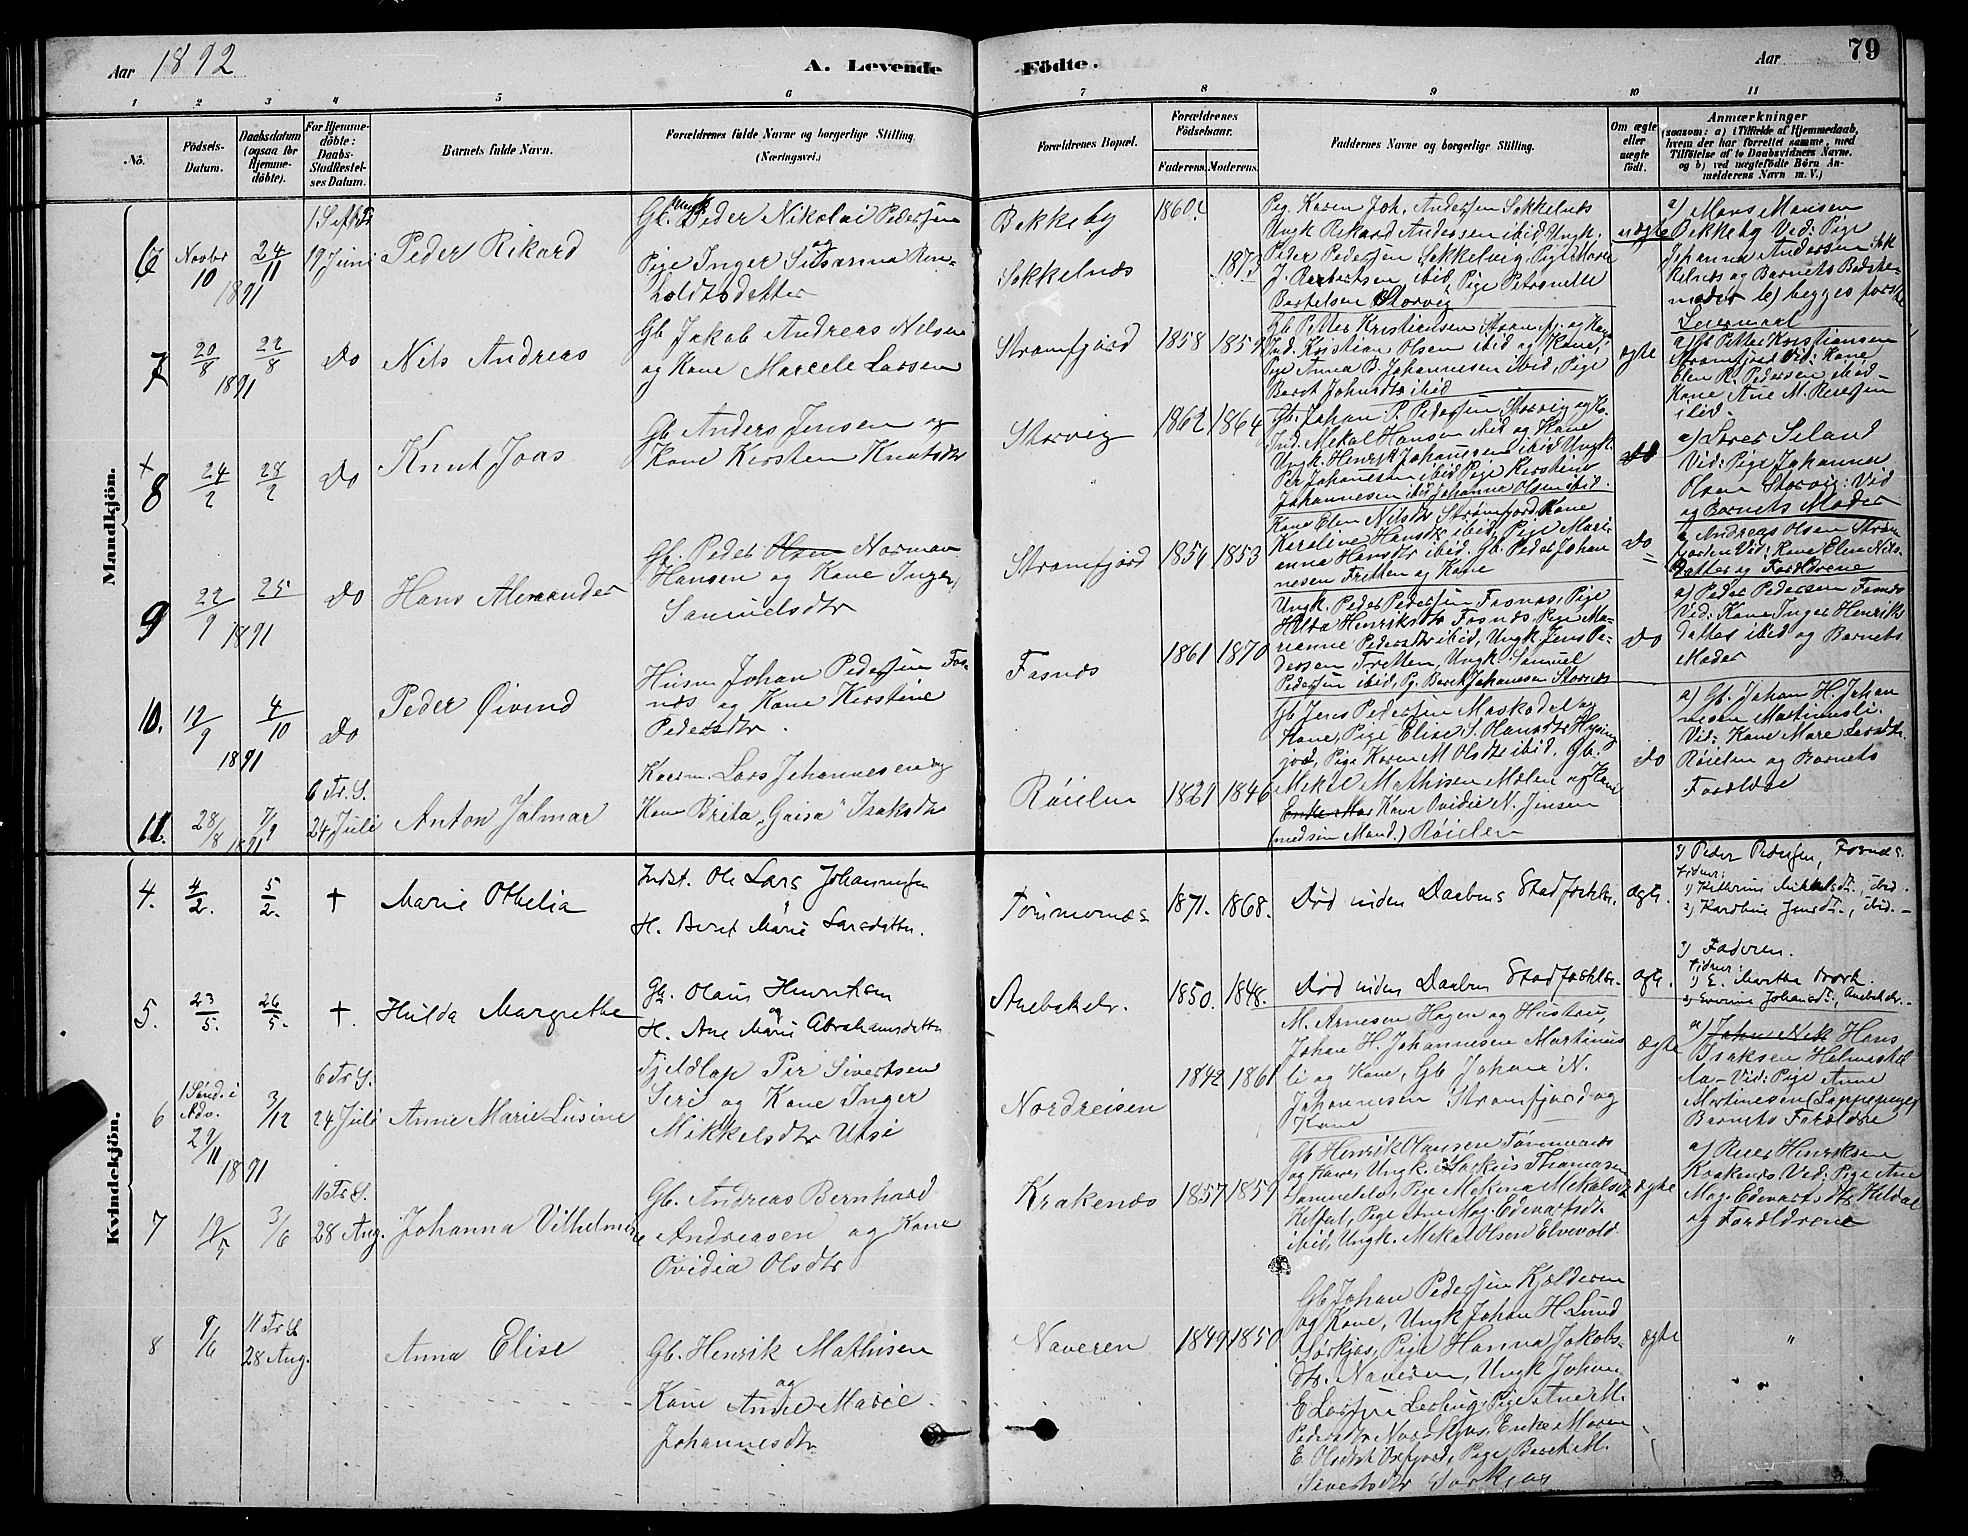 Aar 1892
A. Levende Födte.
Aar
79
1 2 3 4 5 6 7 8 9 10 11
No.
Födsels-Datum.
Daabsdatum (ogsaa for Hjemme-döbte).
For Hjemme-döbte: Daabs-Stadfestel-ses Datum.
Barnets fulde Navn.
Forældrenes fulde Navne og borgerlige Stilling.
(Næringsvei.)
Forældrenes Bopæl.
Forældrenes Födselsaar.
Faderens. Moderens.
Faddernes Navne og borgerlige Stilling.
Om ægte eller uægte födt.
Anmærkninger
(saasom: a) i Tilfælde af Hjemmedaab,
hvem der har forrettet samme, med
Tilföielse af to Daabsvidners Navne.
og b) ved uægtefödte Börn An-
melderens Navn m. V.)
Mandkjön.
6 Novbr 10 1891 24/11 19 Juni Peder Rikard
Ungk Peder Nikolai Pedersen
og
Pige Inger Susanna Rein-
holdtsdatter
Bakkeby
Sokkelnæs
1860. 1873
Pig. Karen Joh. Andersen Sokkelnæs
Ungk Rikard Andersen ibid, Ungk.
Peder Pedersen Sokkelvig, Pige Marie
ibid, Pige Petronelle
Bertelsen Storvig
uægte
a) Mons Monsen
Bakkeby Vid: Pige
Johanna Andersen Sok
kelnæs og Barnets Bedste-
moder b) begges første
Leiermaal
7 20/8 1891 22/8 Do Nils Andreas
Gb Jakob Andreas Nilsen
og Kone Marcele Larsen
Strømfjord
1858 1859
Gb Petter Kristiansen Strømfj. og Kone
Ind. Kristian Olsen ibid og Kone,
Pige Anna B. Johannesen ibid, Pige
Beret Johnsdtr ibid
ægte
a) Gb Petter Kristiansen
Strømfjord Vid: Kone
Elen R. Pedersen ibid-
Kone Ane M.
ibid-
+
8 24/2 28/2 Do Knut Joas
Gb. Anders Jensen og
Kone Kirsten Knutsdtr
Storvig
1862 1864
Gb. Johan P. Pedersen Storvig og Ko.
Ind. Mekal Hansen ibid og Kone
Ungk. Henrik Johannesen ibid Ungk.
Per Johannesen ibid Pige Kirsten
Johannesen ibid Johanna Olsen ibid.
Do
a) Lærer Siland
Vid: Pige Johanna
Olsen Storvig: Vid
og Barnets Moder
9 22/9 1891 25 Do Hans Alexander
Gb. Peder Olsen Norman
Hansen og Kone Inger
Samuelsdtr
Strømfjord
1854 1853
Kone Elen Nilsdtr Strømfjord, Kone
Karoline Hansdtr ibid, Pige Mari-
anne Hansdtr ibid. Gb. Peder Johan
nesen Tretten og Kone
Do
a) Andreas Olsen Strøm
fjorden Vid: Kone Elen Nils-
datter og Forældrene
10. 12/9 1891 4/10 Do Peder Øivind
Husm Johan Pedersen Fos-
næs og Kone Kirstine
Pedersdtr.
Fosnæs
1861 1870
Ungk. Peder Pedersen Fosnæs, Pige
Hilda Henriksdtr Fosnæs, Pige Ma-
rianne Pedersdtr ibid, Ungk Jens Pe-
dersen Tretten, Ungk. Samuel
Pedersen ibid, Pg. Beret Johannesen Storvik
Do
a) Peder Pedersen Fosnæs
Vid: Kone Inger Henriks
datter ibid og Barnets
Moder
11. 28/8 1891 7/9 6 Tr. S. 24 Juli Anton Jalmar
Kvæn. Lars Johannesen og
Kone Brita "Gaisa" Isaksdtr
Røielen
1829 1846
Gb Jens Pedersen Maskodel og
Kone, Pige Elise S. Hansdtr
Pige Karen M Olsdtr ibid. Gb.
Mekel Mathisen Molen og Kone
Kone Ovidie N. Jensen
(med sin Mand.) Røielen
Do
a) Gb. Johan H. Johan
nesen Martinusli.
Vid: Kone Mare Larsdtr.
Røielen og Barnets
Forældre
Kvindekjön.
4. 4/2. 5/2. + Marie Othelia
Indst. Ole Lars Johannesen
H. Beret Marie Larsdatter.
Tømmernæs 1871. 1868.
Død inden Daabens Stadfæstelse.
ægte.
a) Peder Pedersen, Fosnæs.
Vidner:
1) Kathrine Mikkelsdtr., ibid.
2) Karoline Jensdtr., ibid.-
5. 23/5. 26/5. + Hulda Margrethe
Gb. Olaus Henriksen
og
H. Ane Marie Abrahamsdatter
Anebakelv. 1850. 1848.
Død inden Daabens Stadfæstelse.
ægte.
a) Faderen.
Vidner:
1) E. Martha
2) Johansdtr.,
6 1 Sønd. i Adv. 29/11 1891 3/12 6 Tr S. 24 Juli Anne Marie Lusine
Fjeldlap Per Sivertsen
Siri og Kone Inger
Mikkelsdtr Utsi
Nordreisen
1842 1861
M. Arnesen Hagen og Hustru,
Johan H. Johannesen Martinus
li og Kone, Gb Johan N.
Johannesen Strømfjord og
Kone
ægte
a) Hans
Isaksen
Aa- Vid: Pige Anne
Martinesen (Lappepige)
Barnets Forældre
7 12/5 3/6 11 Tr S. 28 Aug. Johanna Vilhelmine
Gb. Andreas Bernhard
Andreasen og Kone
Ovidia Olsdtr
Krakenæs 1857 1859
Gb Henrik Hansen Tømmernæs
og Kone, Ungk. Markus Thomasen
Pige Mekina Mekelsdtr
Pige Ane Mag. Edevartsdtr
ibid, Ungk. Mekal Olsen Elvevold.
ægte
a) Peder Henriksen
Krakenæs, Vid: Pige Ane
Mag. Edevartsdtr Kildal
og Forældrene
8 9/6 11 Tr S 28 Aug. Anna Elise
Gb. Henrik Mathisen
og
Kone Anne Marie
Johannesdtr
Naveren 1849 1850
Gb Johan Pedersen Kjelderen
og Kone, Ungk Johan H. Lund
Sørkjos, Pige Hanna Jakobs-
dtr. Naveren, Ungk Johan
E Larsen Pige Ane M.
Pedersdtr Nordkjos, Enke Maren
E. Olsdtr Oxfjord, Pige Beret M.
Sivertsdtr Sørkjos
ægte
"
" "